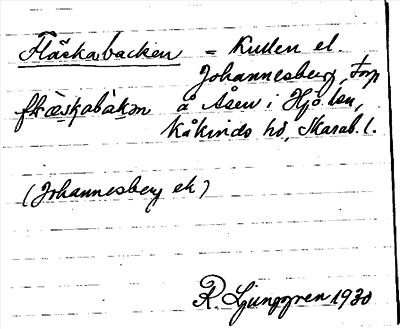 Fläskabacken = Kullen el.
Johannesberg, torp
flæskabàkən å Åsen i Hjo lsn,
Kåkinds hd, Skarab. l.
(Johannesberg ek)
R Ljunggren 1930